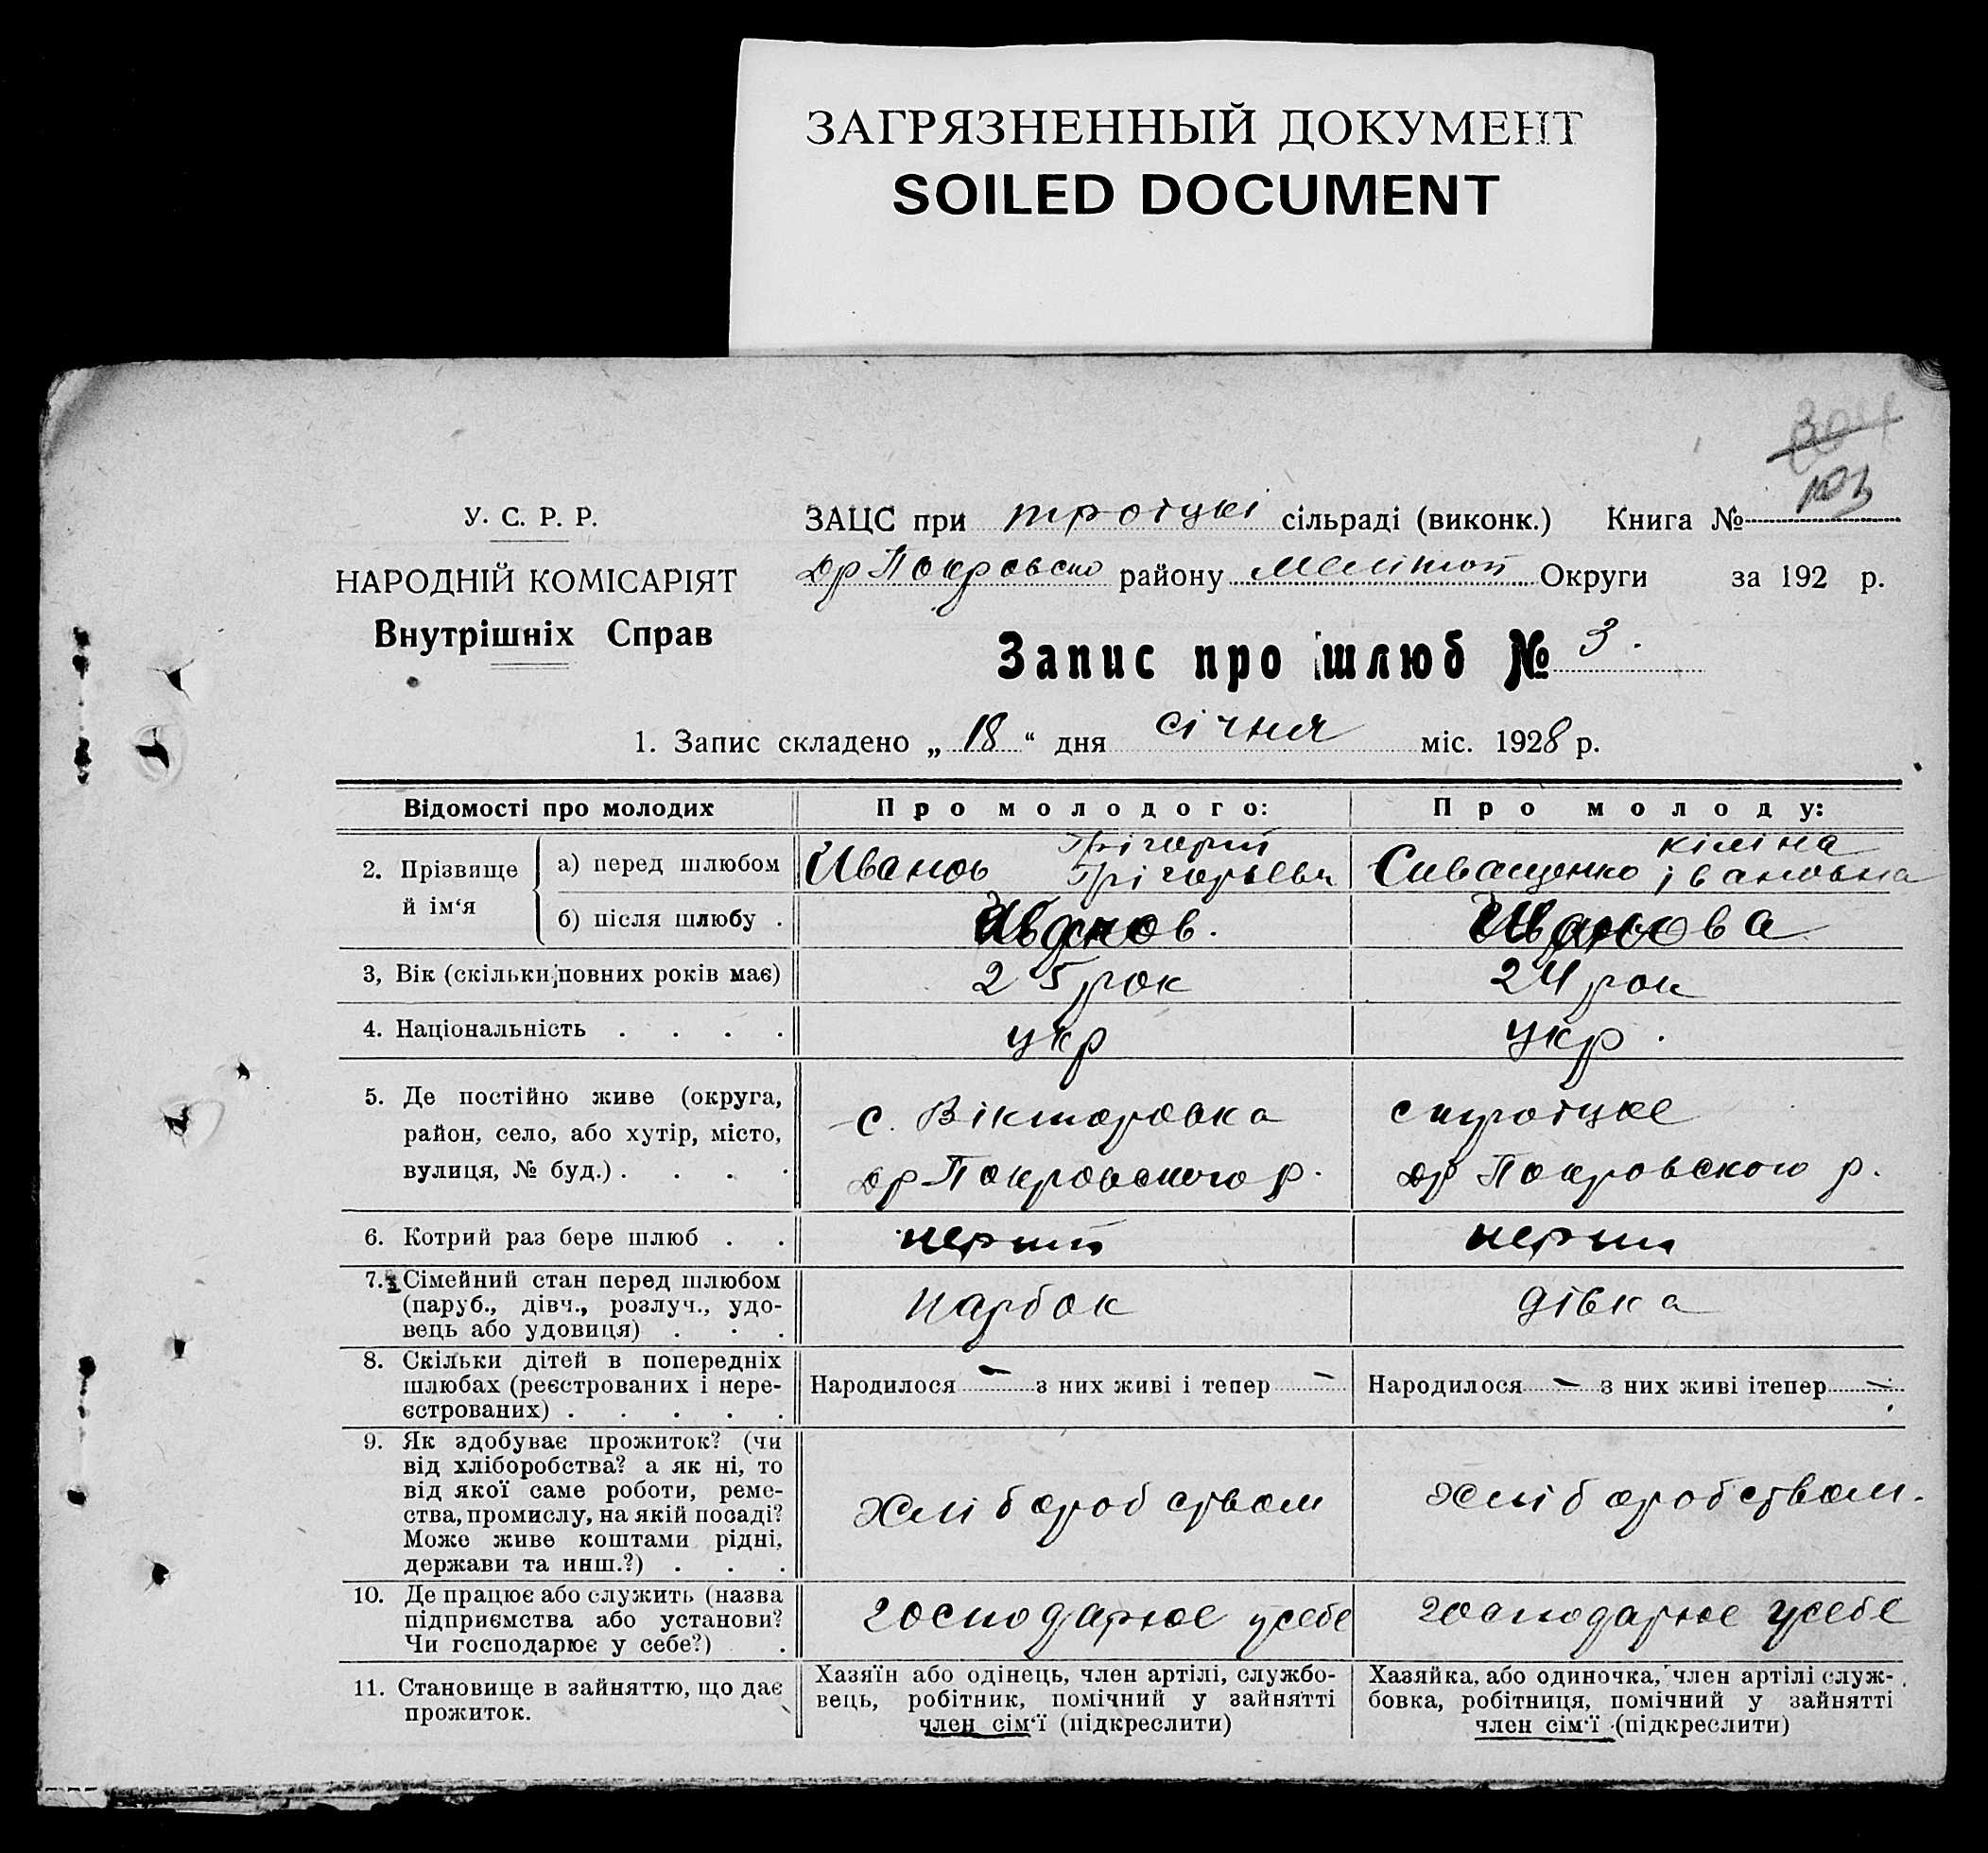 ЗАГРЯЗНЕННЫЙ ДОКУМЕНТ
SOILED DOCUMENT
304
103
У. С. Р. Р.
НАРОДНІЙ КОМІСАРІЯТ
Внутрішніх Справ
ЗАЦС при троцкі сільраді (виконк.) Книга №
Др Покровско району Мелітоп Округи за 192 р.
Запис про шлюб № 3.
1. Запис складено „ 18 “ дня січня міс. 1928 р.
Відомості про молодих
Про молодого:
Про молоду:
2. Прізвище й ім‘я
а) перед шлюбом
Иванов Грігорій Грігорьевич
Сиващенко івановна
б) після шлюбу .
Иванов.
Иванова
3, Вік (скільки повних років має)
25 рок
24 рок
4. Національність . . . .
укр
укр.
5. Де постійно живе (округа,
район, село, або хутір, місто,
вулиця, № буд.) . . . .
с. Вікторовка
Др Покровского р.
с троцке
Др Покровского р.
6. Котрий раз бере шлюб . .
перший
перш
7. Сімейний стан перед шлюбом
(паруб., дівч., розлуч., удо-
вець або удовиця) . . .
парбок
дівка
8. Скільки дітей в попередніх
шлюбах (реєстрованих і нере-
єстрованих) . . . . .
Народилося — з них живі і тепер —
Народилося — з них живі ітепер —
9. Як здобуває прожиток? (чи
від хліборобства? а як ні, то
від якої саме роботи, реме-
ства, промислу, на якій посаді?
Може живе коштами рідні,
держави та инш.?) . . .
хліборобством
хліборобством.
10. Де працює або служить (назва
підприємства або установи?
Чи господарює у себе?) .
господарює усебе
господарює усебе
11. Становище в зайняттю, що дає
прожиток.
Хазяїн або одінець, член артілі, службо-
вець, робітник, помічний у зайнятті
член сім‘ї (підкреслити)
Хазяйка, або одиночка, член артілі служ-
бовка, робітниця, помічний у зайнятті
член сім‘ї (підкреслити)